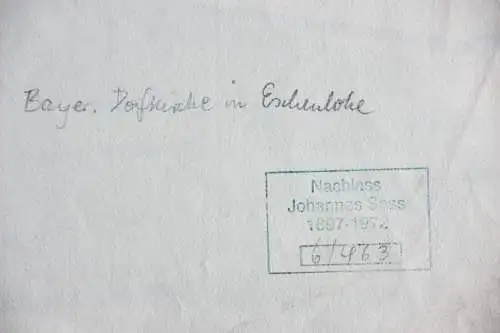 Bayer. Dorfkirche in Eschenlohe
Nachlass
Johannes Sass
1897-1972
6/463